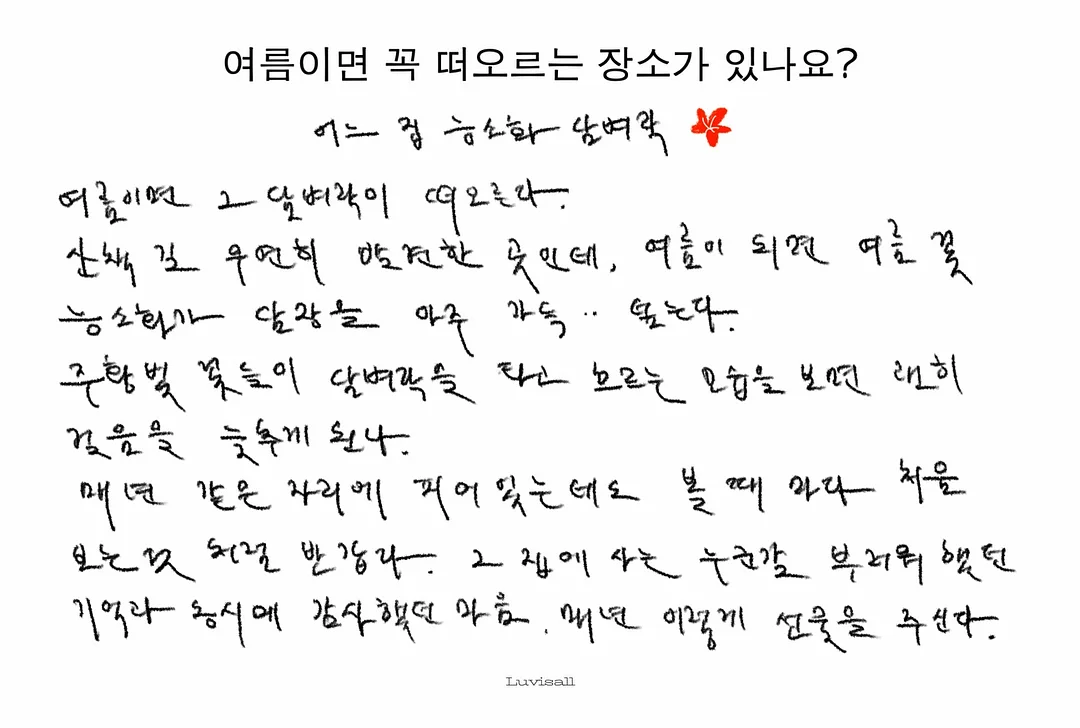 여름이면 꼭 떠오르는 장소가 있나요?
어느 집 능소화 담벼락
여름이면 그 담벼락이 떠오른다.
산책 길 우연히 발견한 곳인데, 여름이 되면 여름 꽃
능소화가 담장을 아주 가득·· 덮는다.
주황빛 꽃들이 담벼락을 타고 흐르는 모습을 보면 괜히
걸음을 늦추게 된다.
매년 같은 자리에 피어있는데도 볼 때 마다 처음
보는것 처럼 반갑다. 그 집에 사는 누군갈 부러워 했던
기억과 동시에 감사했던 마음. 매년 이렇게 선물을 주신다.
Luvisall